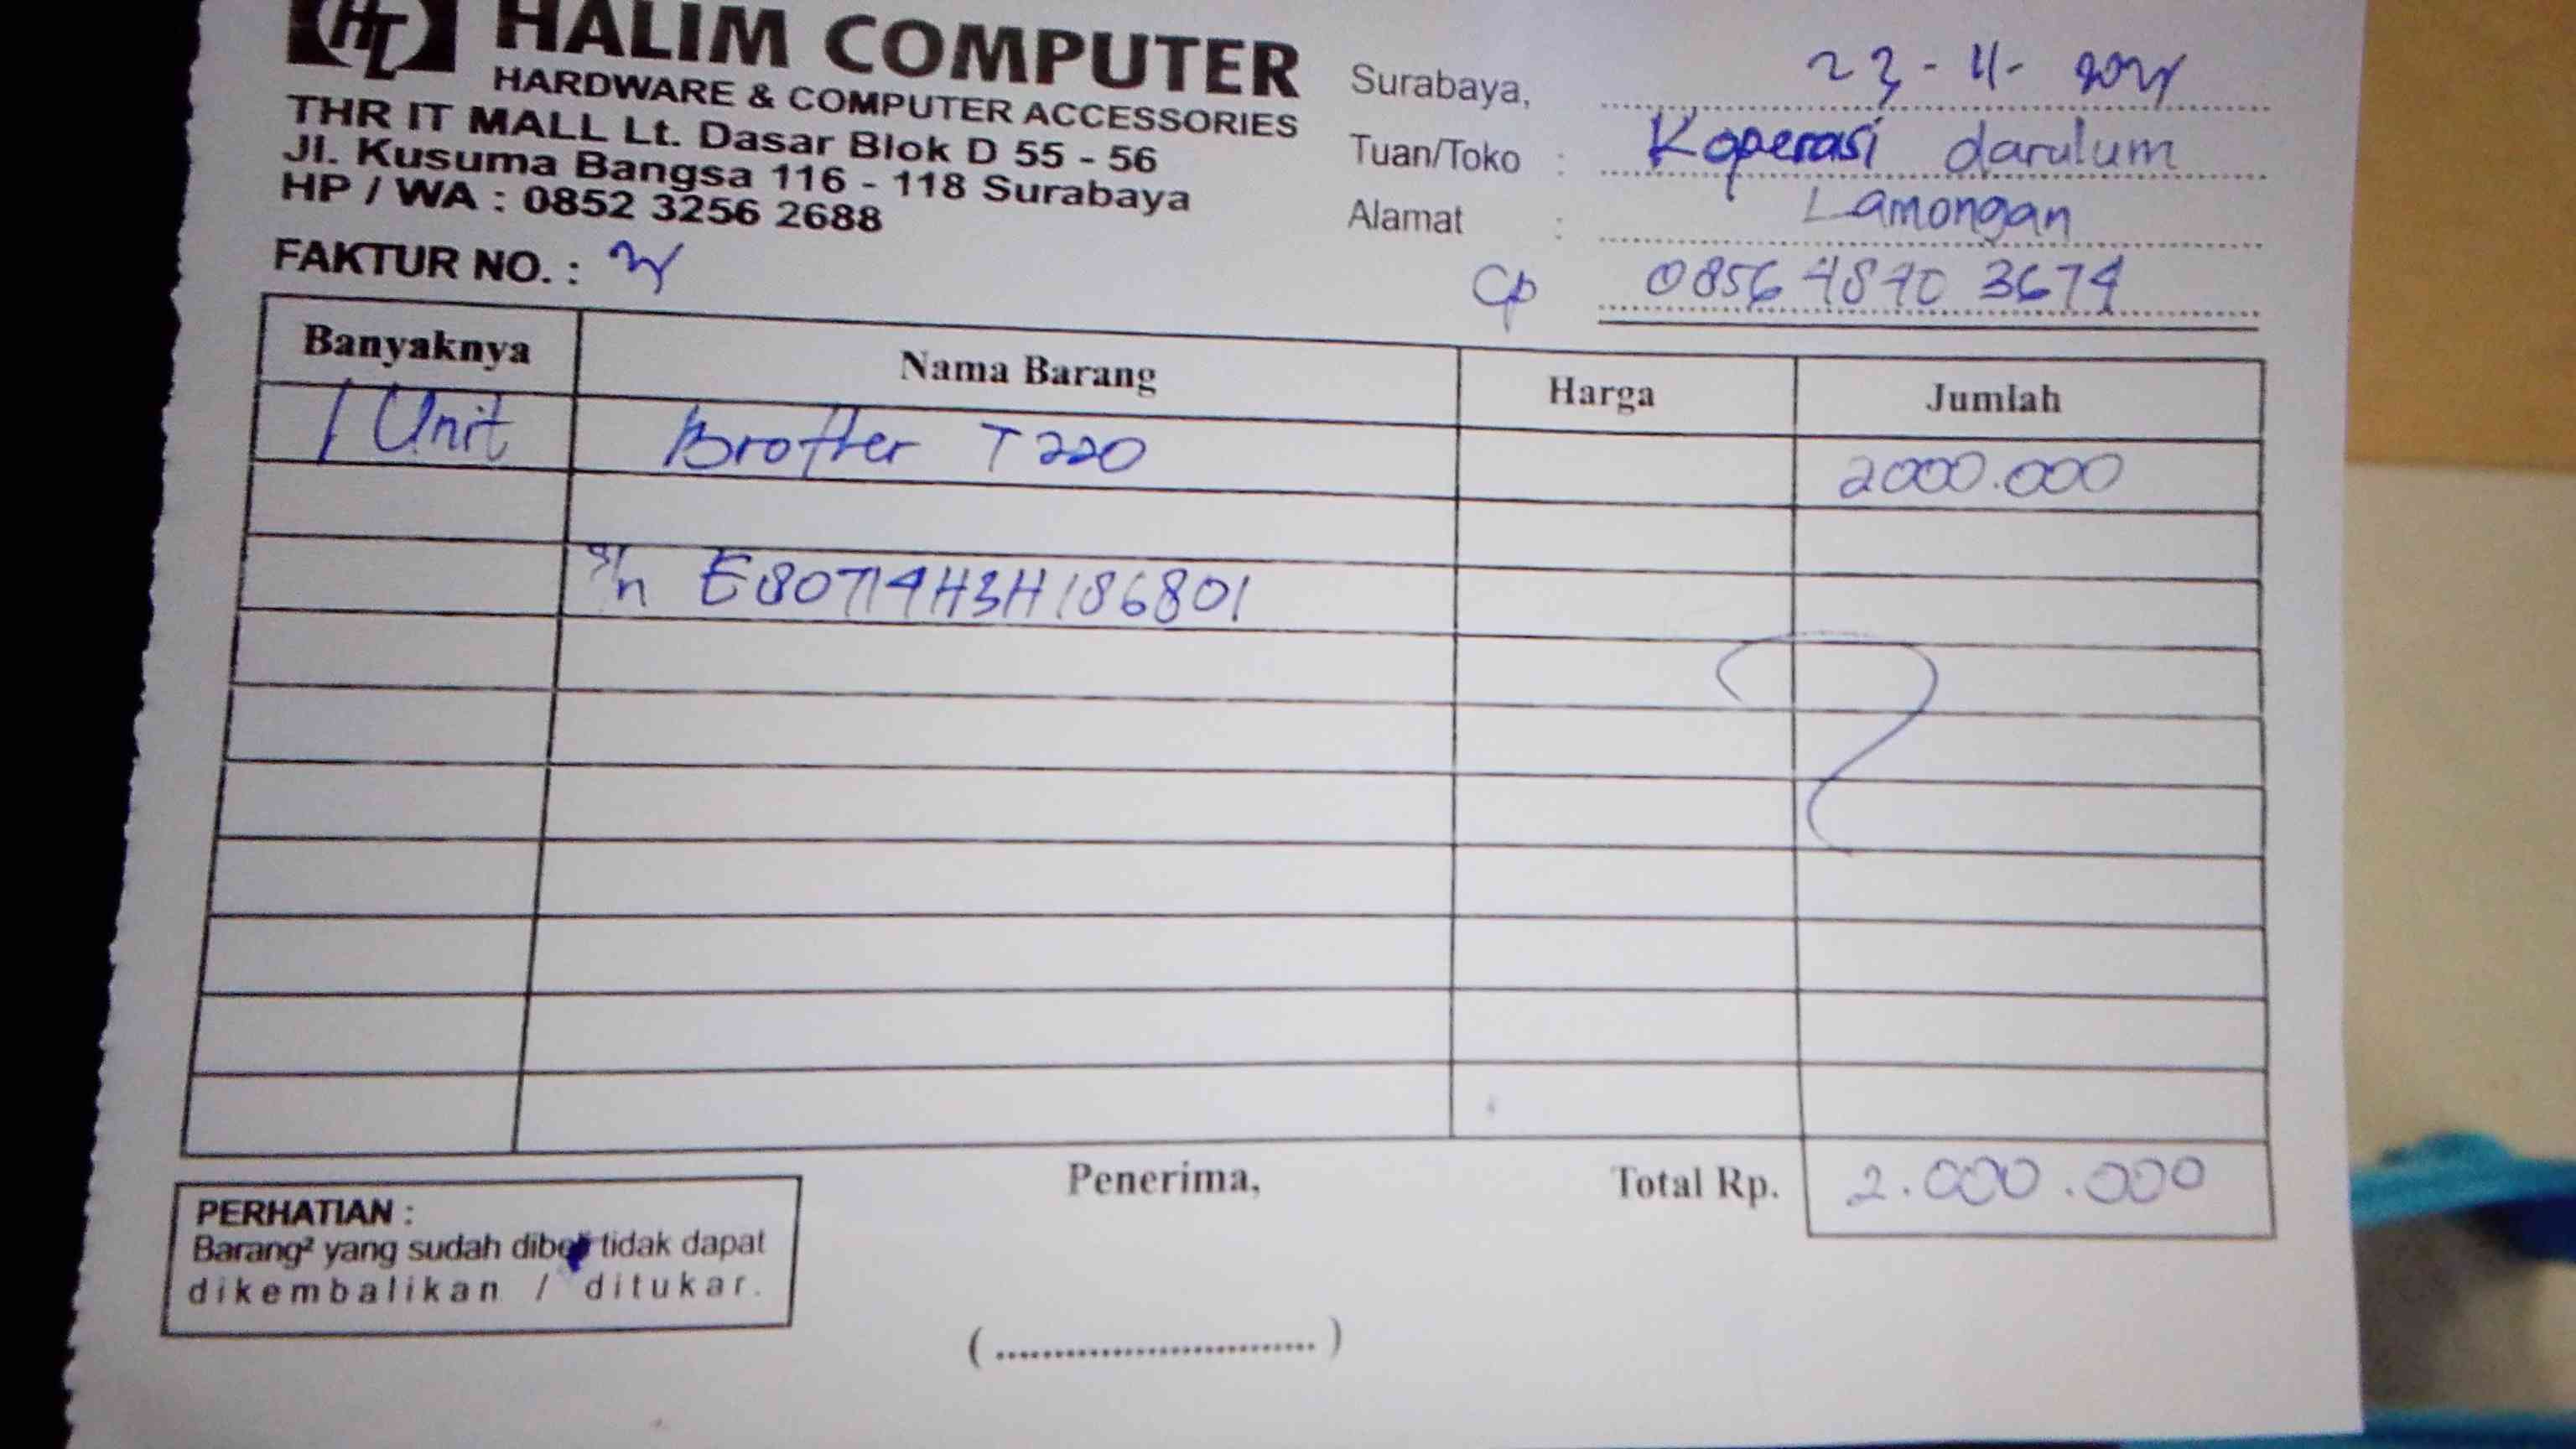 HALIM COMPUTER
HARDWARE & COMPUTER ACCESSORIES
THR IT MALL Lt. Dasar Blok D 55 - 56
Jl. Kusuma Bangsa 116 - 118 Surabaya
HP / WA : 0852 3256 2688
FAKTUR NO. :
Surabaya, 23 - 11 -
Tuan/Toko : Koperasi darulum
Alamat : Lamongan
Cp 0856 4840 3674
Banyaknya Nama Barang Harga Jumlah
1 Unit Brother T220 2000.000
s/n E80714H3H186801
Penerima,
Total Rp. 2.000.000
PERHATIAN :
Barang² yang sudah dibeli tidak dapat
dikembalikan / ditukar.
(..............................)